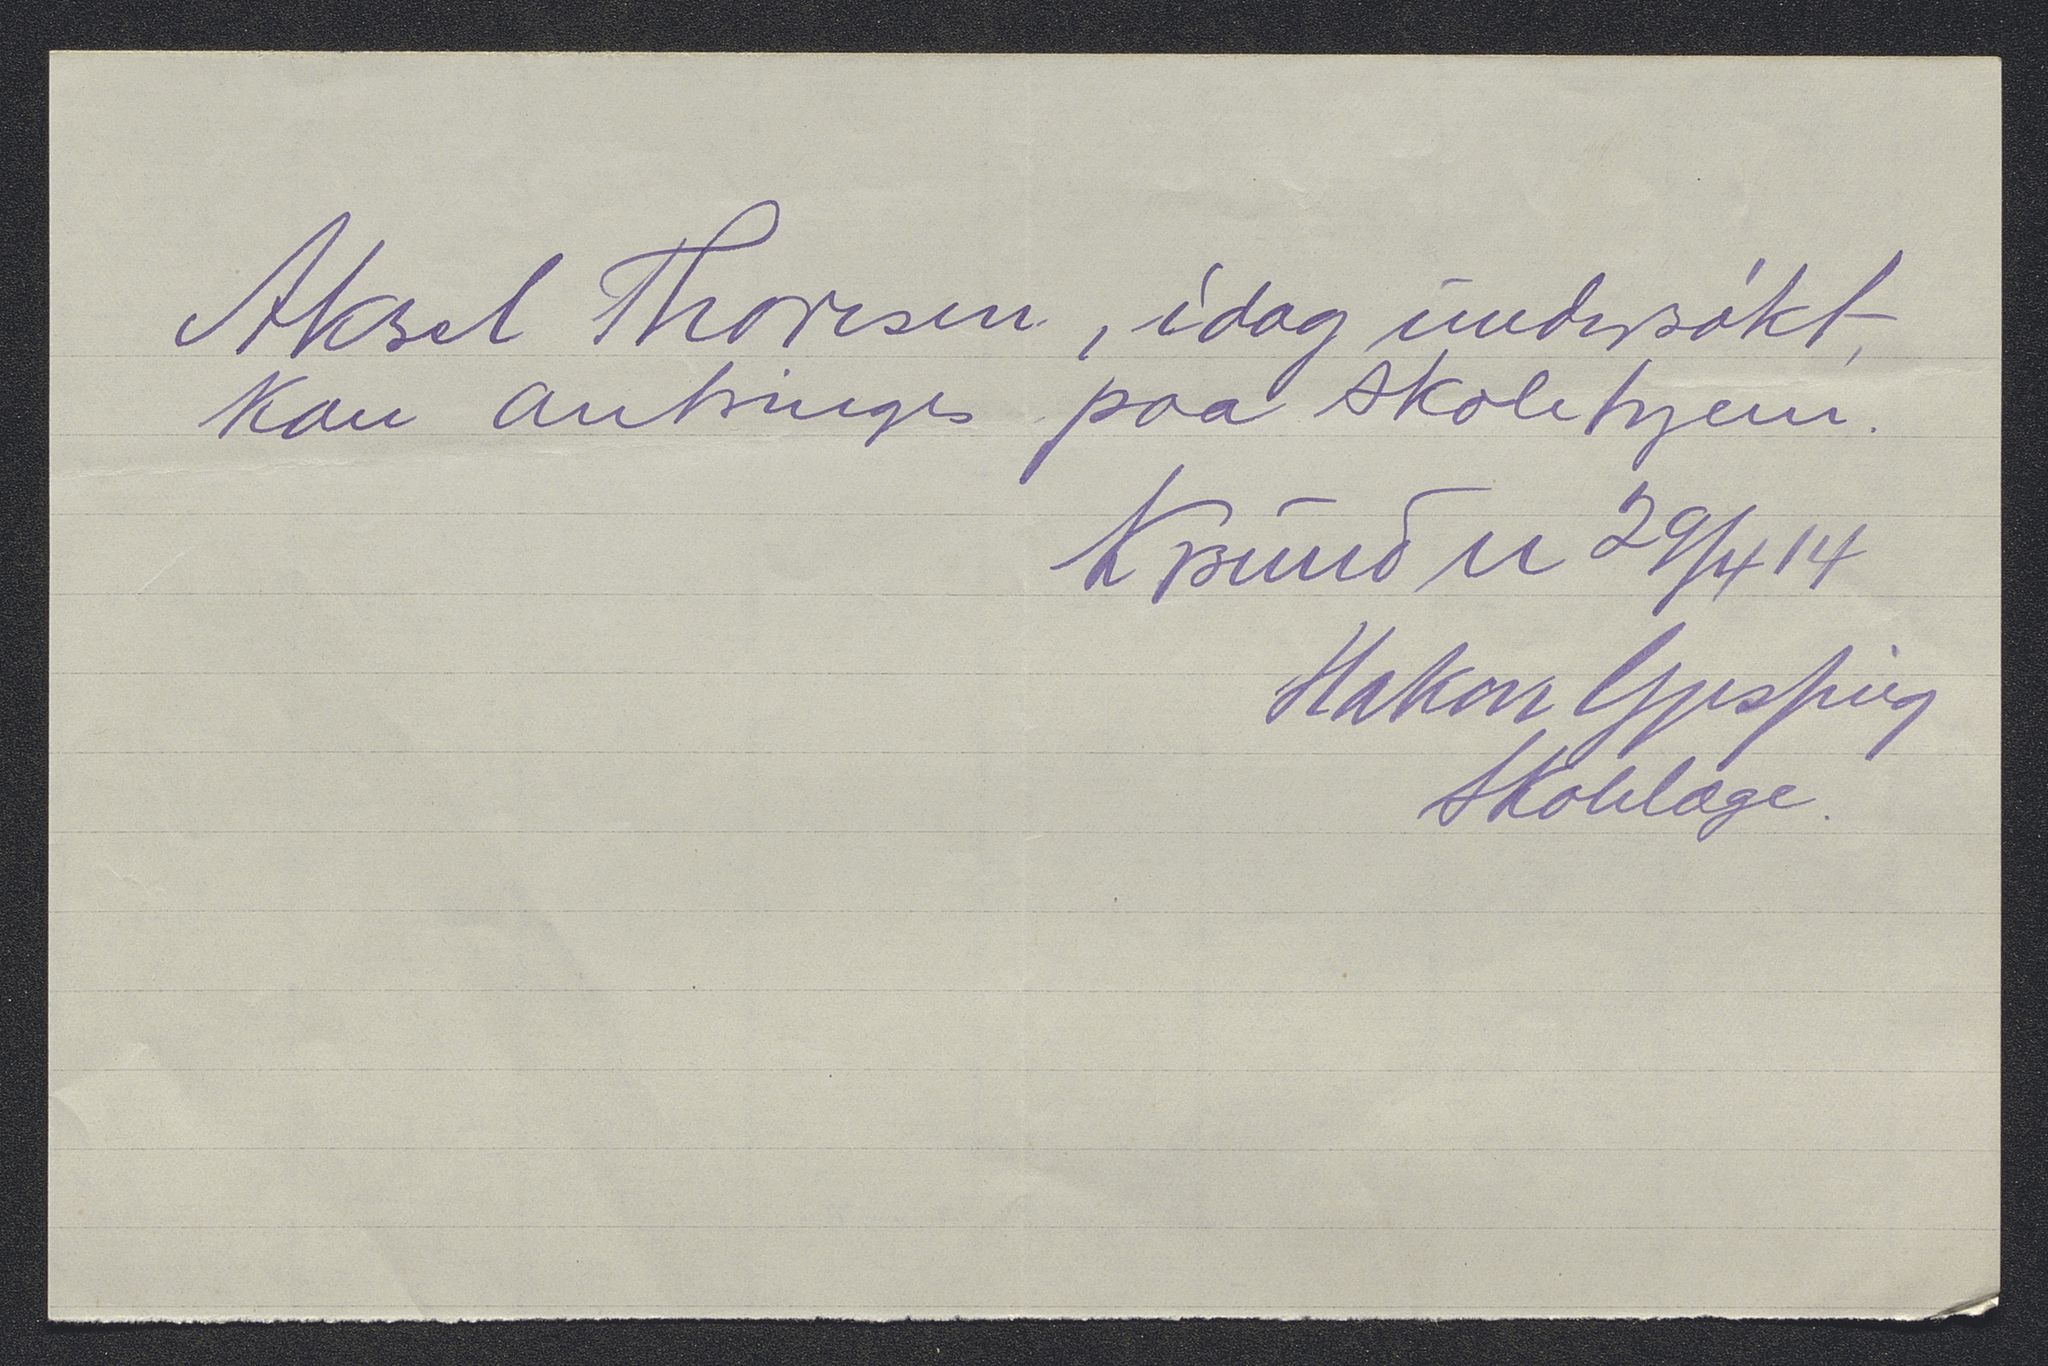 Aksel Thoresen, idag undersøkt,
kan antringes paa skolehjem.
Krsund N 29/4 14
Hakon Gjesping
Skolelæge.